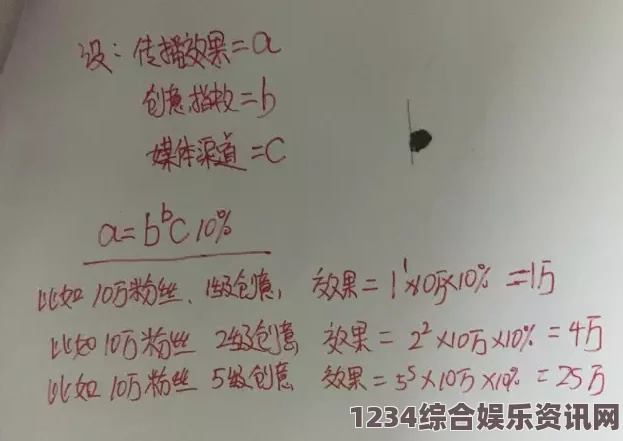 设：传播效果=a
创意指数=b
媒体渠道=C
a=b^b C 10%
比如 10万粉丝、1级创意，效果=1^1×10万×10%=1万
比如 10万粉丝 2级创意 效果=2^2×10万×10%=4万
比如 10万粉丝 5级创意 效果=5^5×10万×10%=25万
1234综合娱乐资讯网